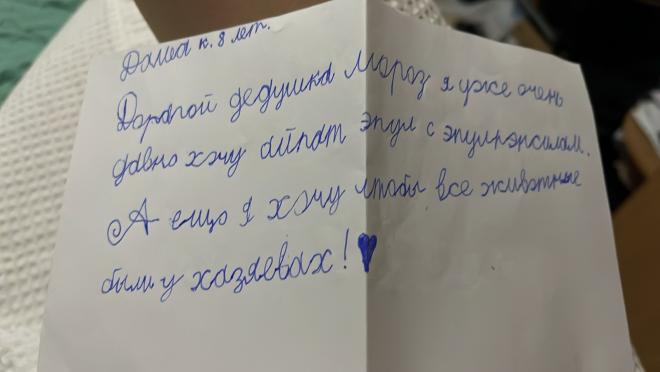 Даша к. 8 лет.
Дорагой дедушка Мароз я уже очень
давно хэчу айпат эпул с эпулпэнсилам.
А ещо я хэчу чтобы все живэтные
были у хазяевах!